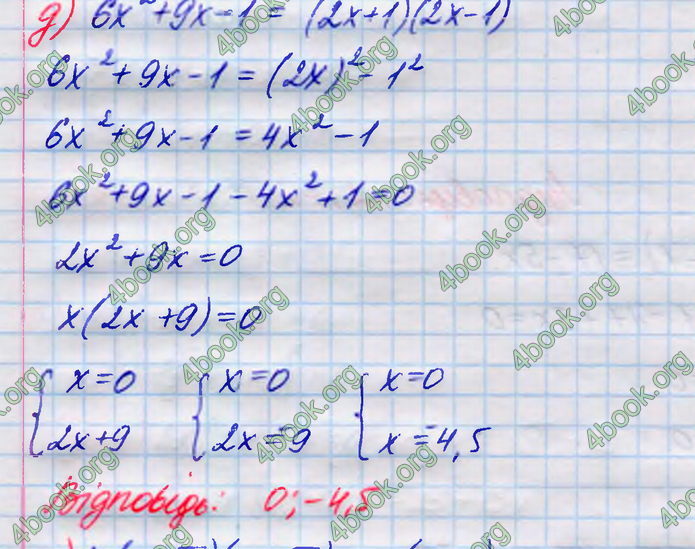 д) 6x² + 9x - 1 = (2x+1)(2x-1)
6x² + 9x - 1 = (2x)² - 1²
6x² + 9x - 1 = 4x² - 1
6x² + 9x - 1 - 4x² + 1 = 0
2x² + 9x = 0
x(2x + 9) = 0
{ x = 0 { x = 0 { x = 0
2x + 9 2x = -9 x = -4,5
Відповідь: 0; -4,5
4book.org